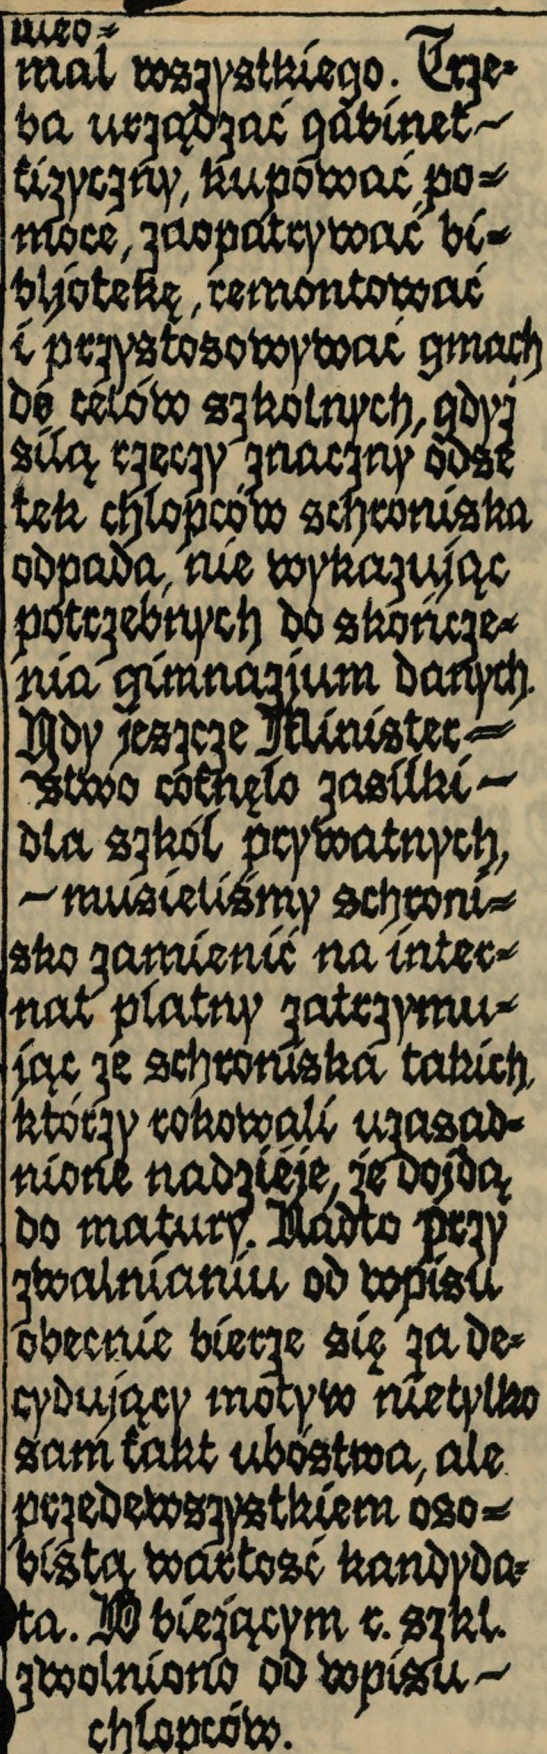 nieo-
mal wszystkiego. Trze-
ba urządzać gabinet-
fizyczny, kupować po-
moce, zaopatrywać bi-
bljotekę, remontować
i przystosowywać gmach
do celów szkolnych, gdyż
siłą rzeczy znaczny odse
tek chłopców schroniska
odpada, nie wykazując
potrzebnych do skończe-
nia gimnazjum danych.
Gdy jeszcze Minister-
stwo cofnęło zasiłki-
dla szkół prywatnych,
-musieliśmy schroni-
sko zamienić na inter-
nat płatny zatrzymu-
jąc ze schroniska takich,
którzy rokowali uzasad-
nione nadzieje, że dojdą
do matury. Nadto przy
zwalnianiu od wpisu
obecnie bierze się za de-
cydujący motyw nietylko
sam fakt ubóstwa, ale
przedewszystkiem oso-
bistą wartość kandyda-
ta. W bieżącym r. szkl.
zwolniono od wpisu-
chłopców.